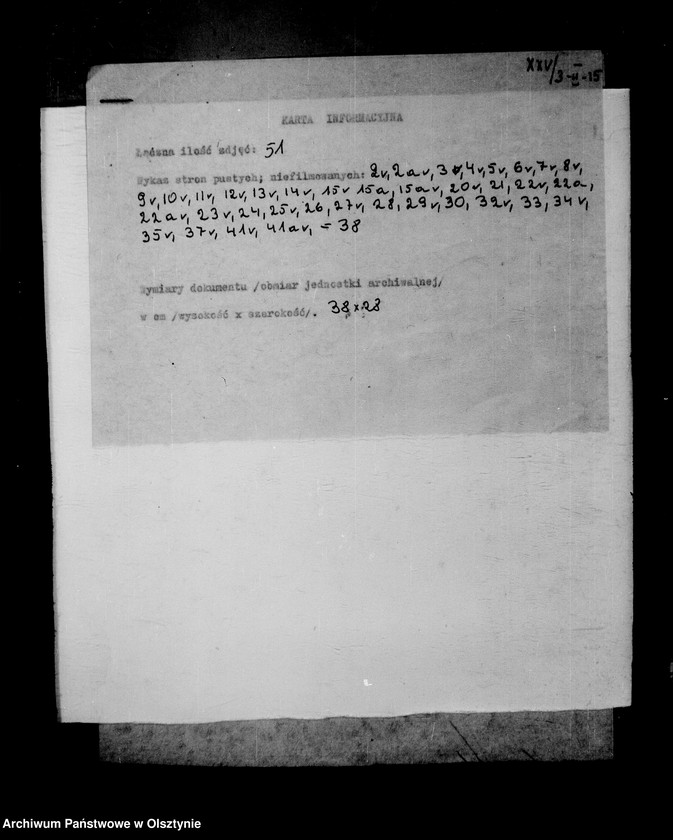 XXV/3-II-15
KARTA INFORMACYJNA
Łączna ilość zdjęć: 51
Wykaz stron pustych; niefilmowanych: 2v, 2av, 3v, 4v, 5v, 6v, 7v, 8v,
9v, 10v, 11v, 12v, 13v, 14v, 15v 15a, 15av, 20v, 21, 22v, 22a,
22av, 23v, 24, 25v, 26, 27v, 28, 29v, 30, 32v, 33, 34v,
35v, 37v, 41v, 41av, = 38
Wymiary dokumentu /obmiar jednostki archiwalnej/
w cm /wysokość x szerokość/. 38x28
Archiwum Państwowe w Olsztynie